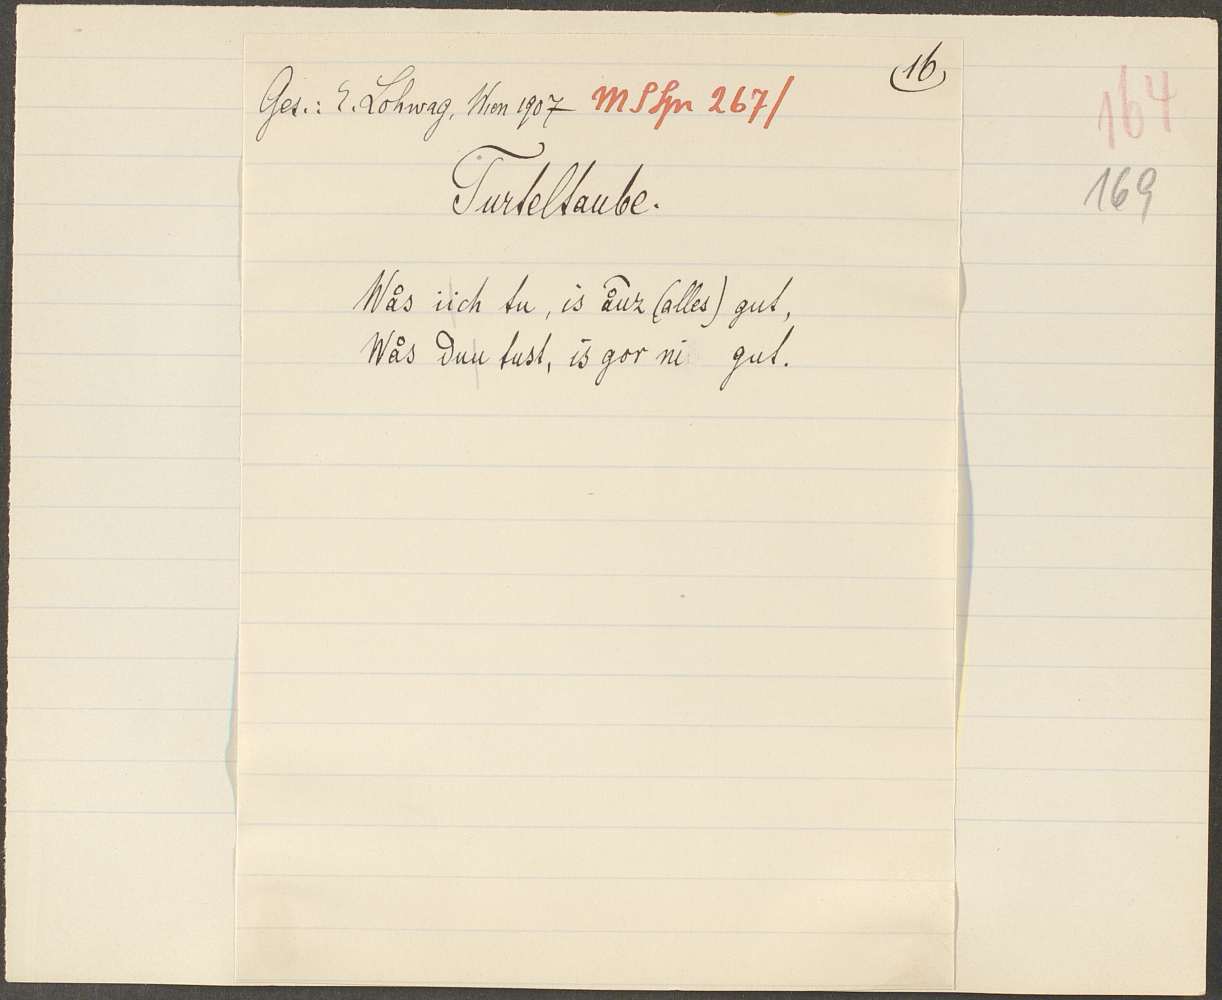 16
Ges.: E. Lohwag, Wien 1907 MSSpr 267/
164
169
Turteltaube.
Wås iich tu, is ånz (alles) gut,
Wås Duu tust, is gor ni gut.